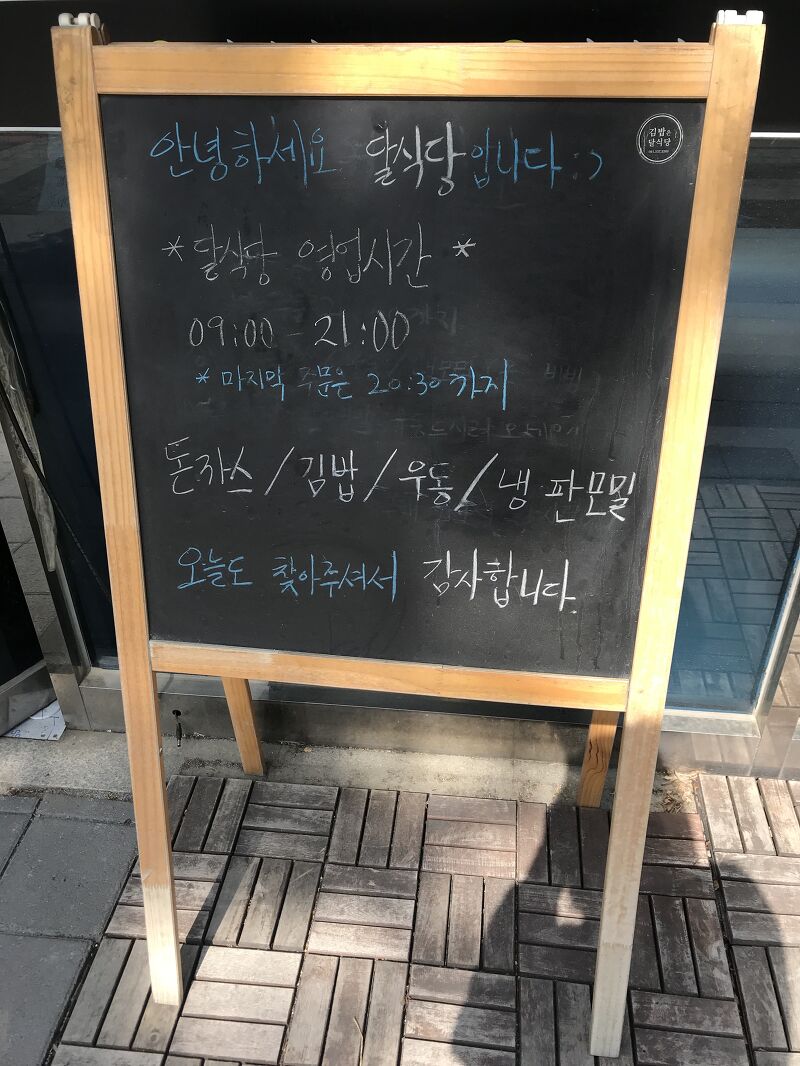 안녕하세요 달식당입니다 :>
김밥은!
달식당
* 달식당 영업시간 *
09:00 - 21:00
* 마지막 주문은 20:30 까지
돈까스 / 김밥 / 우동 / 냉 판모밀
오늘도 찾아주셔서 감사합니다.